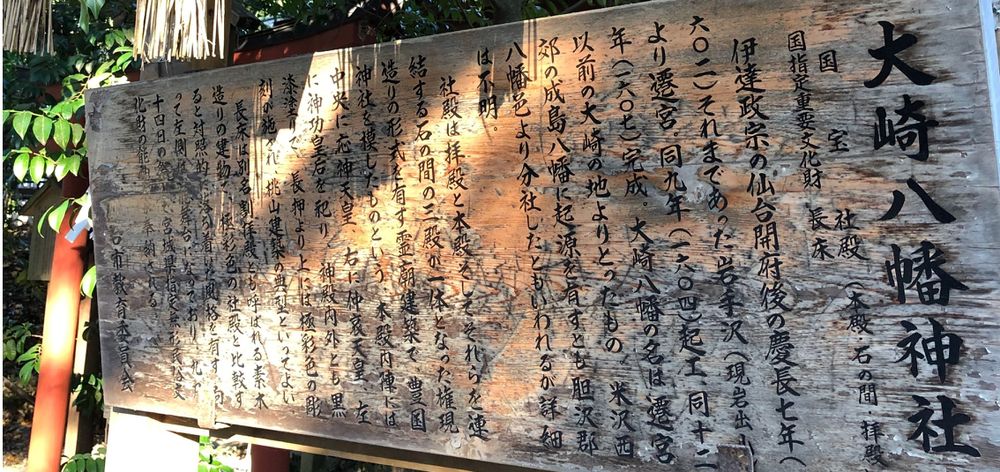 大崎八幡神社
国宝 社殿(本殿・石の間・拝殿
国指定重要文化財 長床
伊達政宗の仙台開府後の慶長七年(
六〇二)それまであった岩手沢(現岩出山
より遷宮。同九年(一六〇四)起工、同十二
年(一六〇七)完成。大崎八幡の名は遷宮
以前の大崎の地よりとったもの、米沢西
郊の成島八幡に起源を有すとも胆沢郡
八幡邑より分社したともいわれるが詳細
は不明。
社殿は拝殿と本殿そしてそれらを連
結する石の間の三殿が一体となった権現
造りの形式を有す霊廟建築で、豊国
神社を模したものという。本殿内陣には
中央に応神天皇、右に仲哀天皇、左
に神功皇后を祀り、神殿内外とも黒
漆塗りで、長押より上には極彩色の彫
刻が施され、桃山建築の典型といってよい
長床は別名割拝殿とも呼ばれる素木
造りの建物で、極彩色の社殿と比較す
ると対照的
って左
十四日の 宮城県指定
化財の能 奉納される。
台市教育委員会